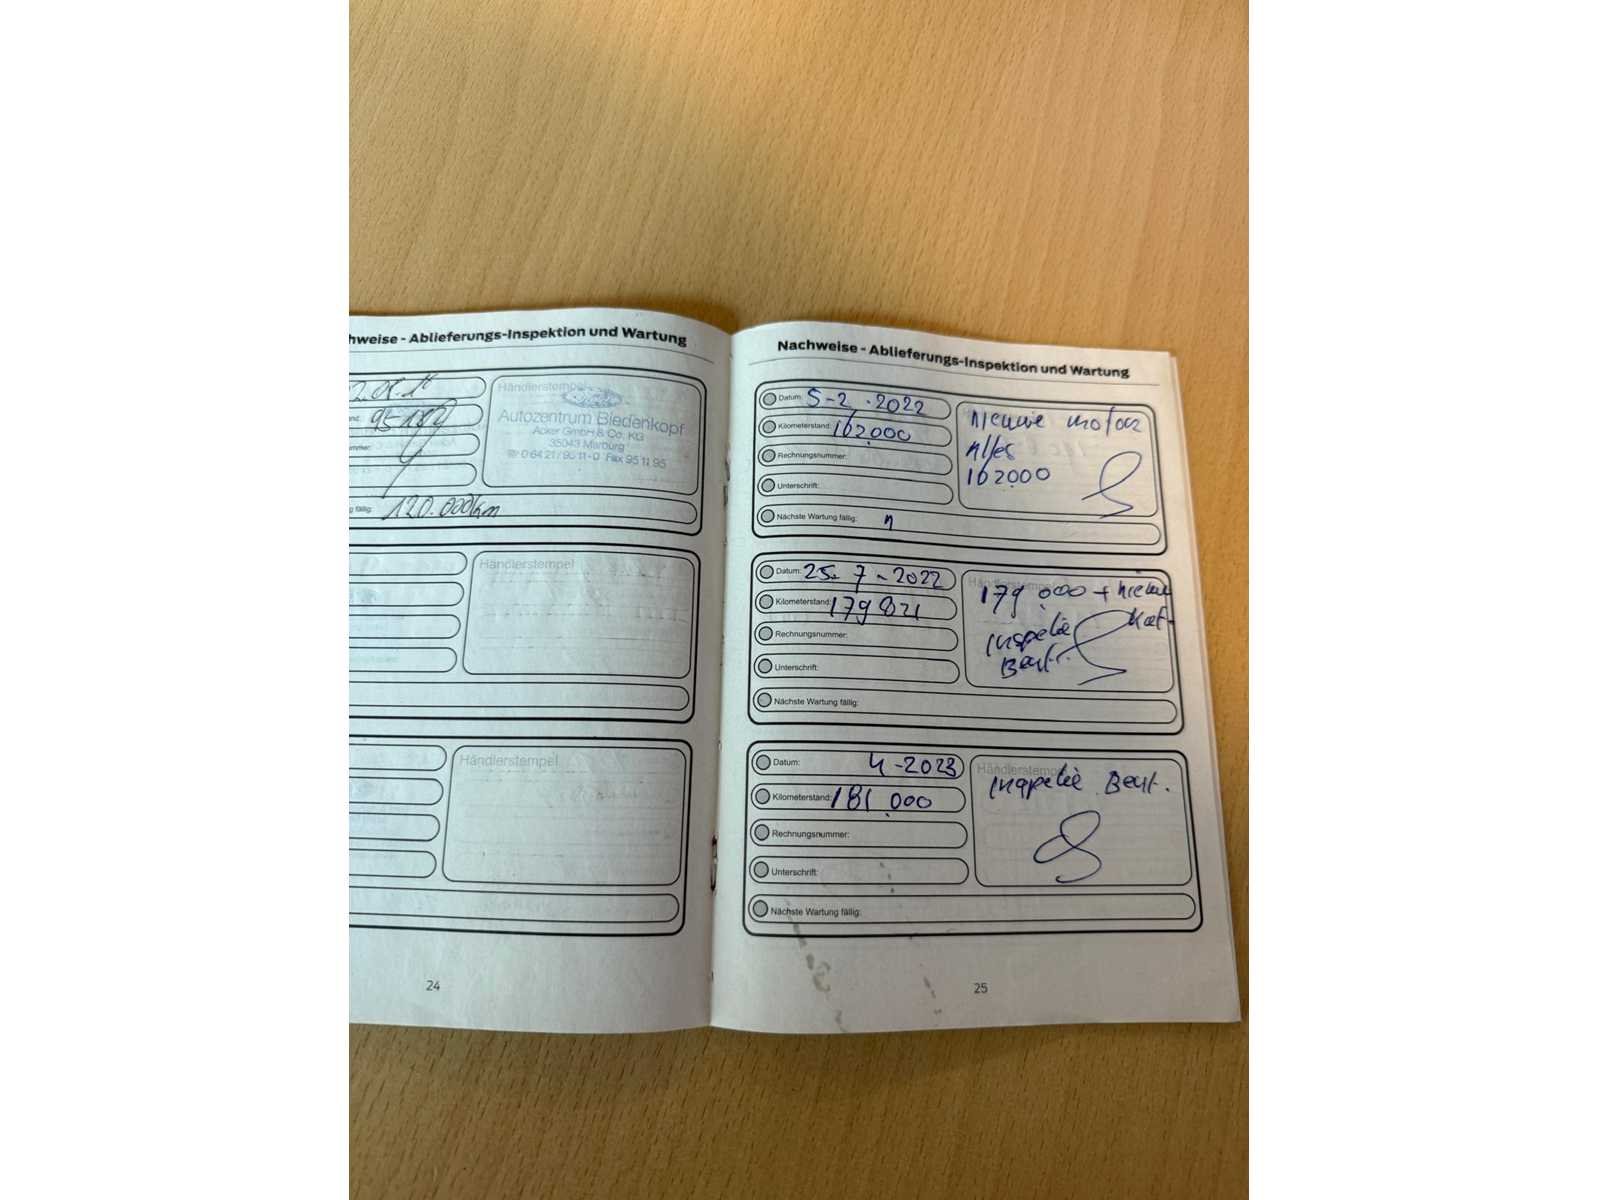 hweise - Ablieferungs-Inspektion und Wartung
95
Händlerstempel
Autozentrum Biedenkopf
Acker GmbH & Co. KG
35043 Marburg
☎ 0 64 21 / 95 11-0 Fax 95 11 95
g fällig: 120.000km
Händlerstempel
Händlerstempel
24
Nachweise - Ablieferungs-Inspektion und Wartung
Datum: 5-2.2022
Kilometerstand: 162.000
Rechnungsnummer:
Unterschrift:
Nächste Wartung fällig:
Nieuwe motor
Alles
162000
Datum: 25-7-2022
Kilometerstand: 179821
Rechnungsnummer:
Unterschrift:
Nächste Wartung fällig:
Händlerstempel
179.000 + nieuwe
Inspectie
Beurt.
Datum: 4-2023
Kilometerstand: 181.000
Rechnungsnummer:
Unterschrift:
Nächste Wartung fällig:
Händlerstempel
Inspectie Beurt.
25